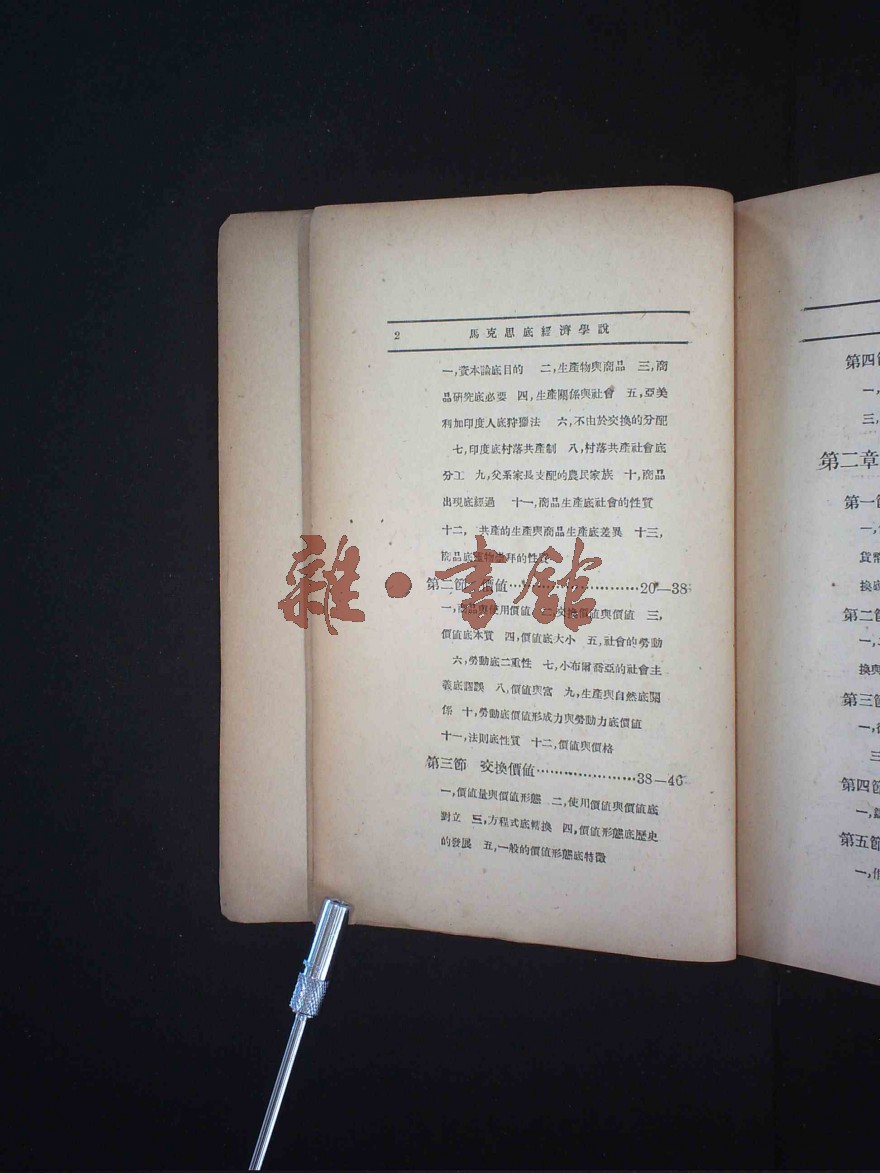 2 馬克思底經濟學說
一,資本論底目的 二,生產物與商品 三,商
品研究底必要 四,生產關係與社會 五,亞美
利加印度人底狩獵法 六,不由於交換的分配
七,印度底村落共產制 八,村落共產社會底
分工 九,父系家長支配的農民家族 十,商品
出現底經過 十一,商品生產底社會的性質
十二, 共產的生產與商品生產底差異 十三,
商品底拜的性質
第二節 價值……………………20—38
一,商品與使用價值 二,交換價值與價值 三,
價值底本質 四,價值底大小 五,社會的勞動
六,勞動底二重性 七,小布爾喬亞的社會主
義底謬誤 八,價值與富 九,生產與自然底關
係 十,勞動底價值形成力與勞動力底價值
十一,法則底性質 十二,價值與價格
第三節 交換價值…………………38—46
一,價值量與價值形態 二,使用價值與價值底
對立 三,方程式底轉換 四,價值形態底歷史
的發展 五,一般的價值形態底特徵
雜·書館
第四節
一,
三,
第二章
第一節
一,
貨幣
換底
第二節
一,
換與
第三節
一,
三
第四節
一,
第五節
一,